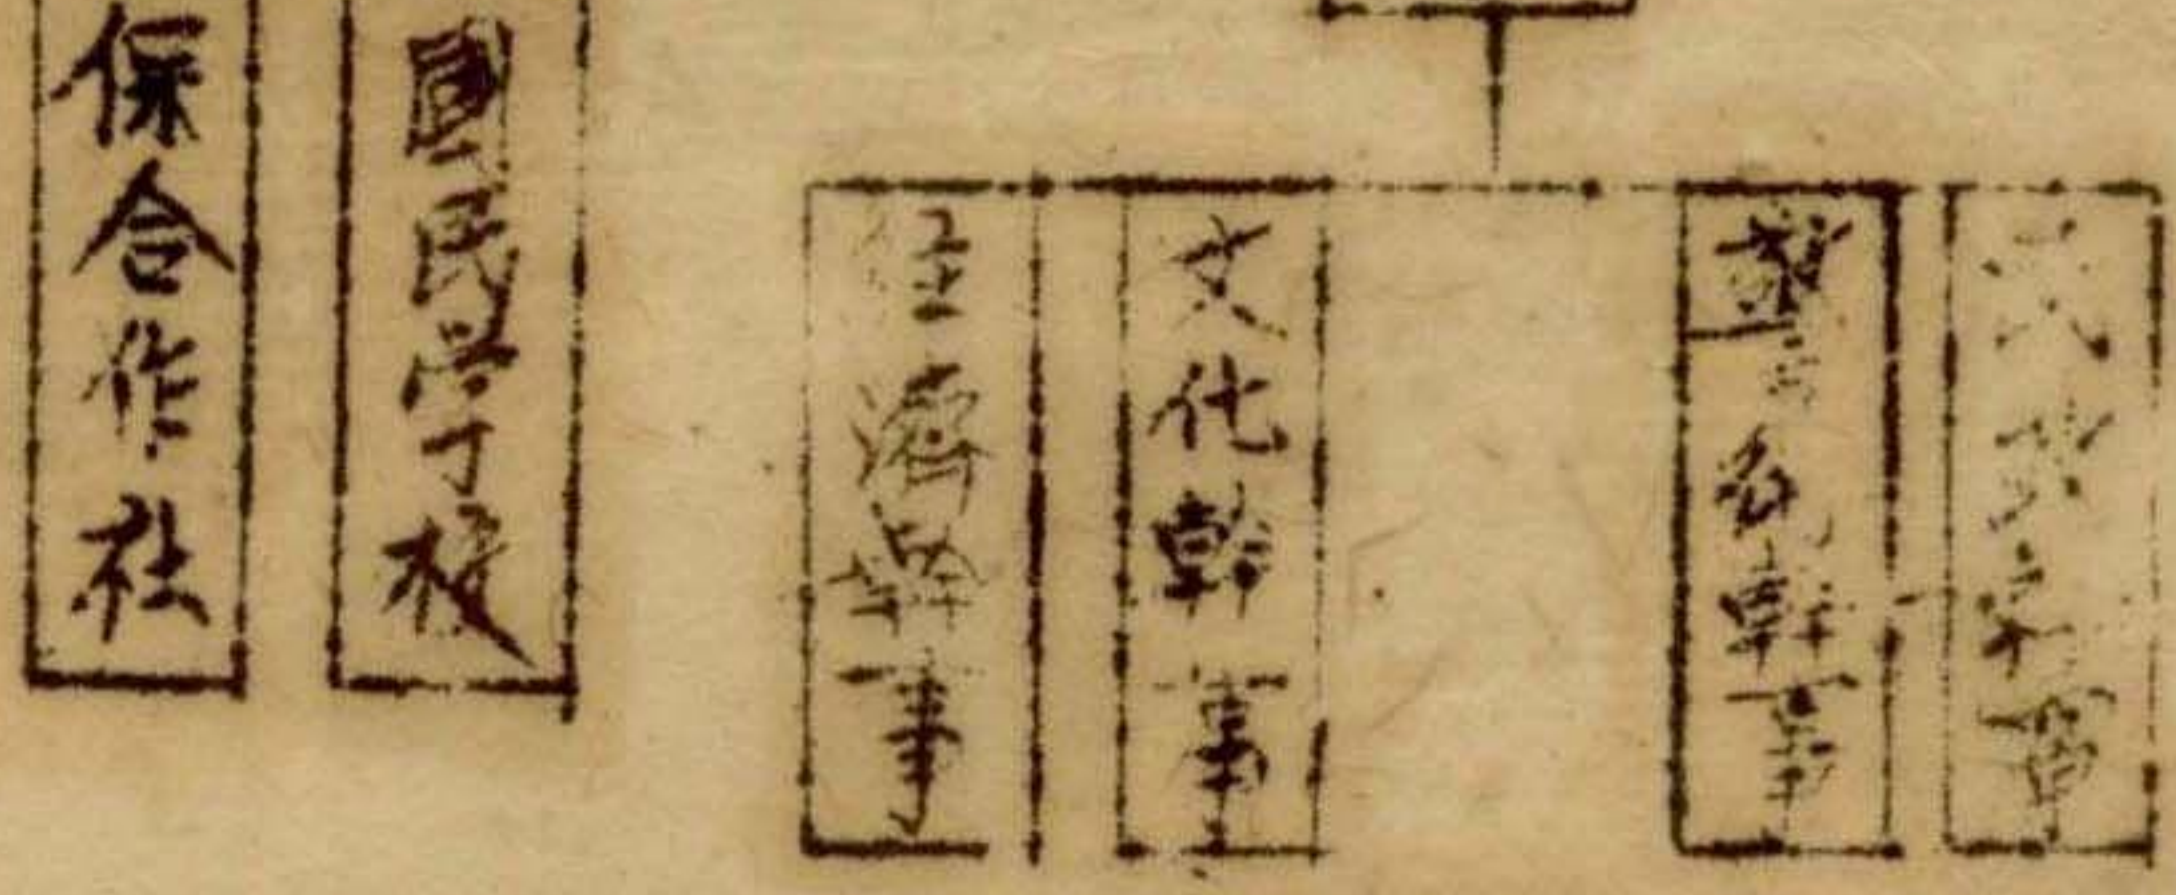 幹事
警衛幹事
文化幹事
經濟幹事
國民学校
保合作社